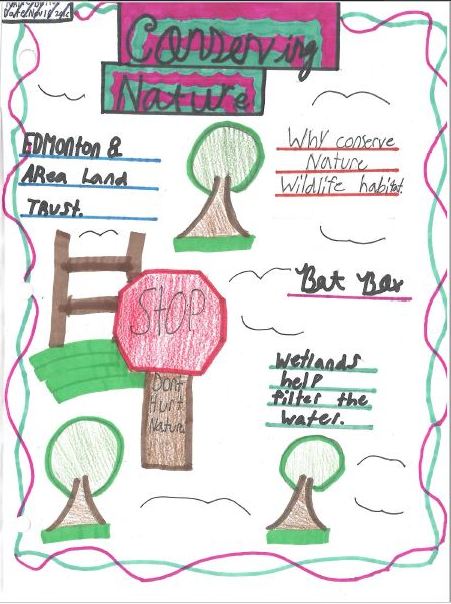 Conserving
Nature
EDMonton &
ARea Land
TRUST.
Why conserve
Nature
Wildlife habitat.
STOP
Bat Box
Dont
Hurt
Nature
Wetlands
help
filter the
water.